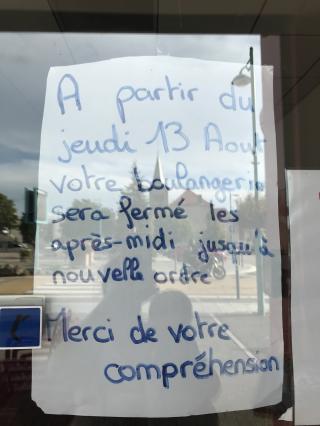 A partir du
jeudi 13 Aout
votre boulangerie
sera fermé les
après-midi jusqu'à
nouvelle ordre
Merci de votre
compréhension